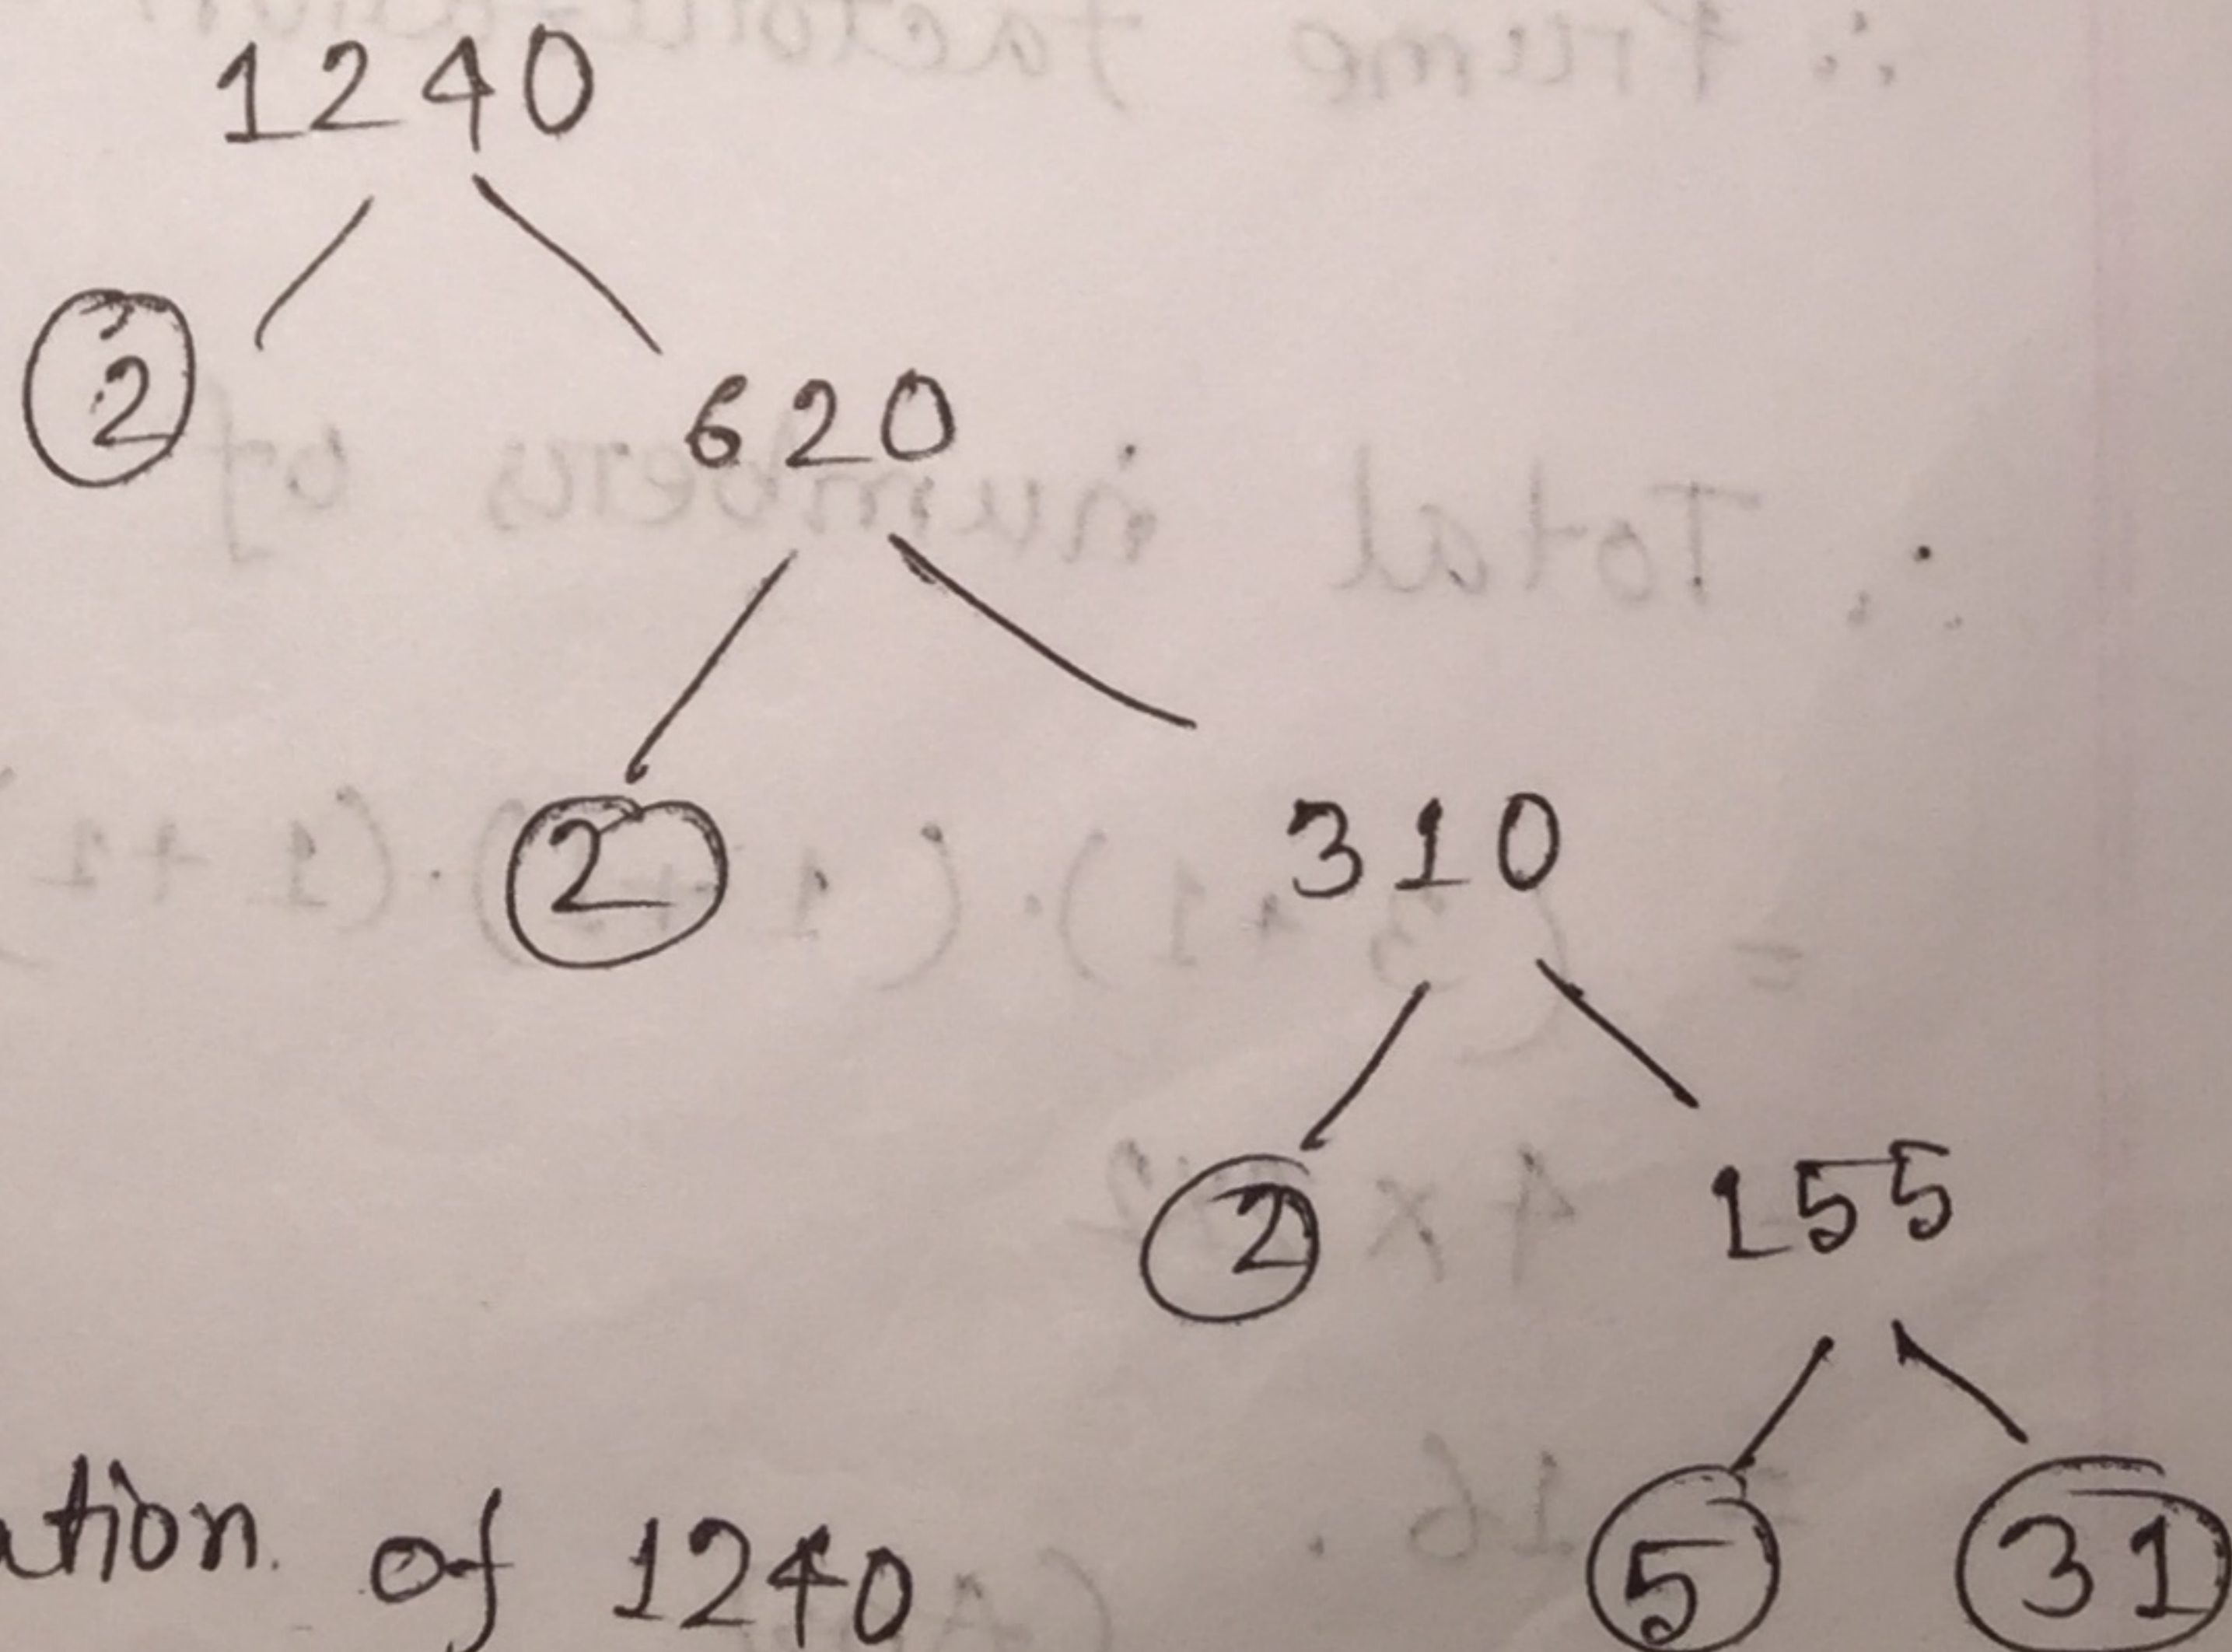 1240
2
620
2
310
2
155
5 31
ation of 1240